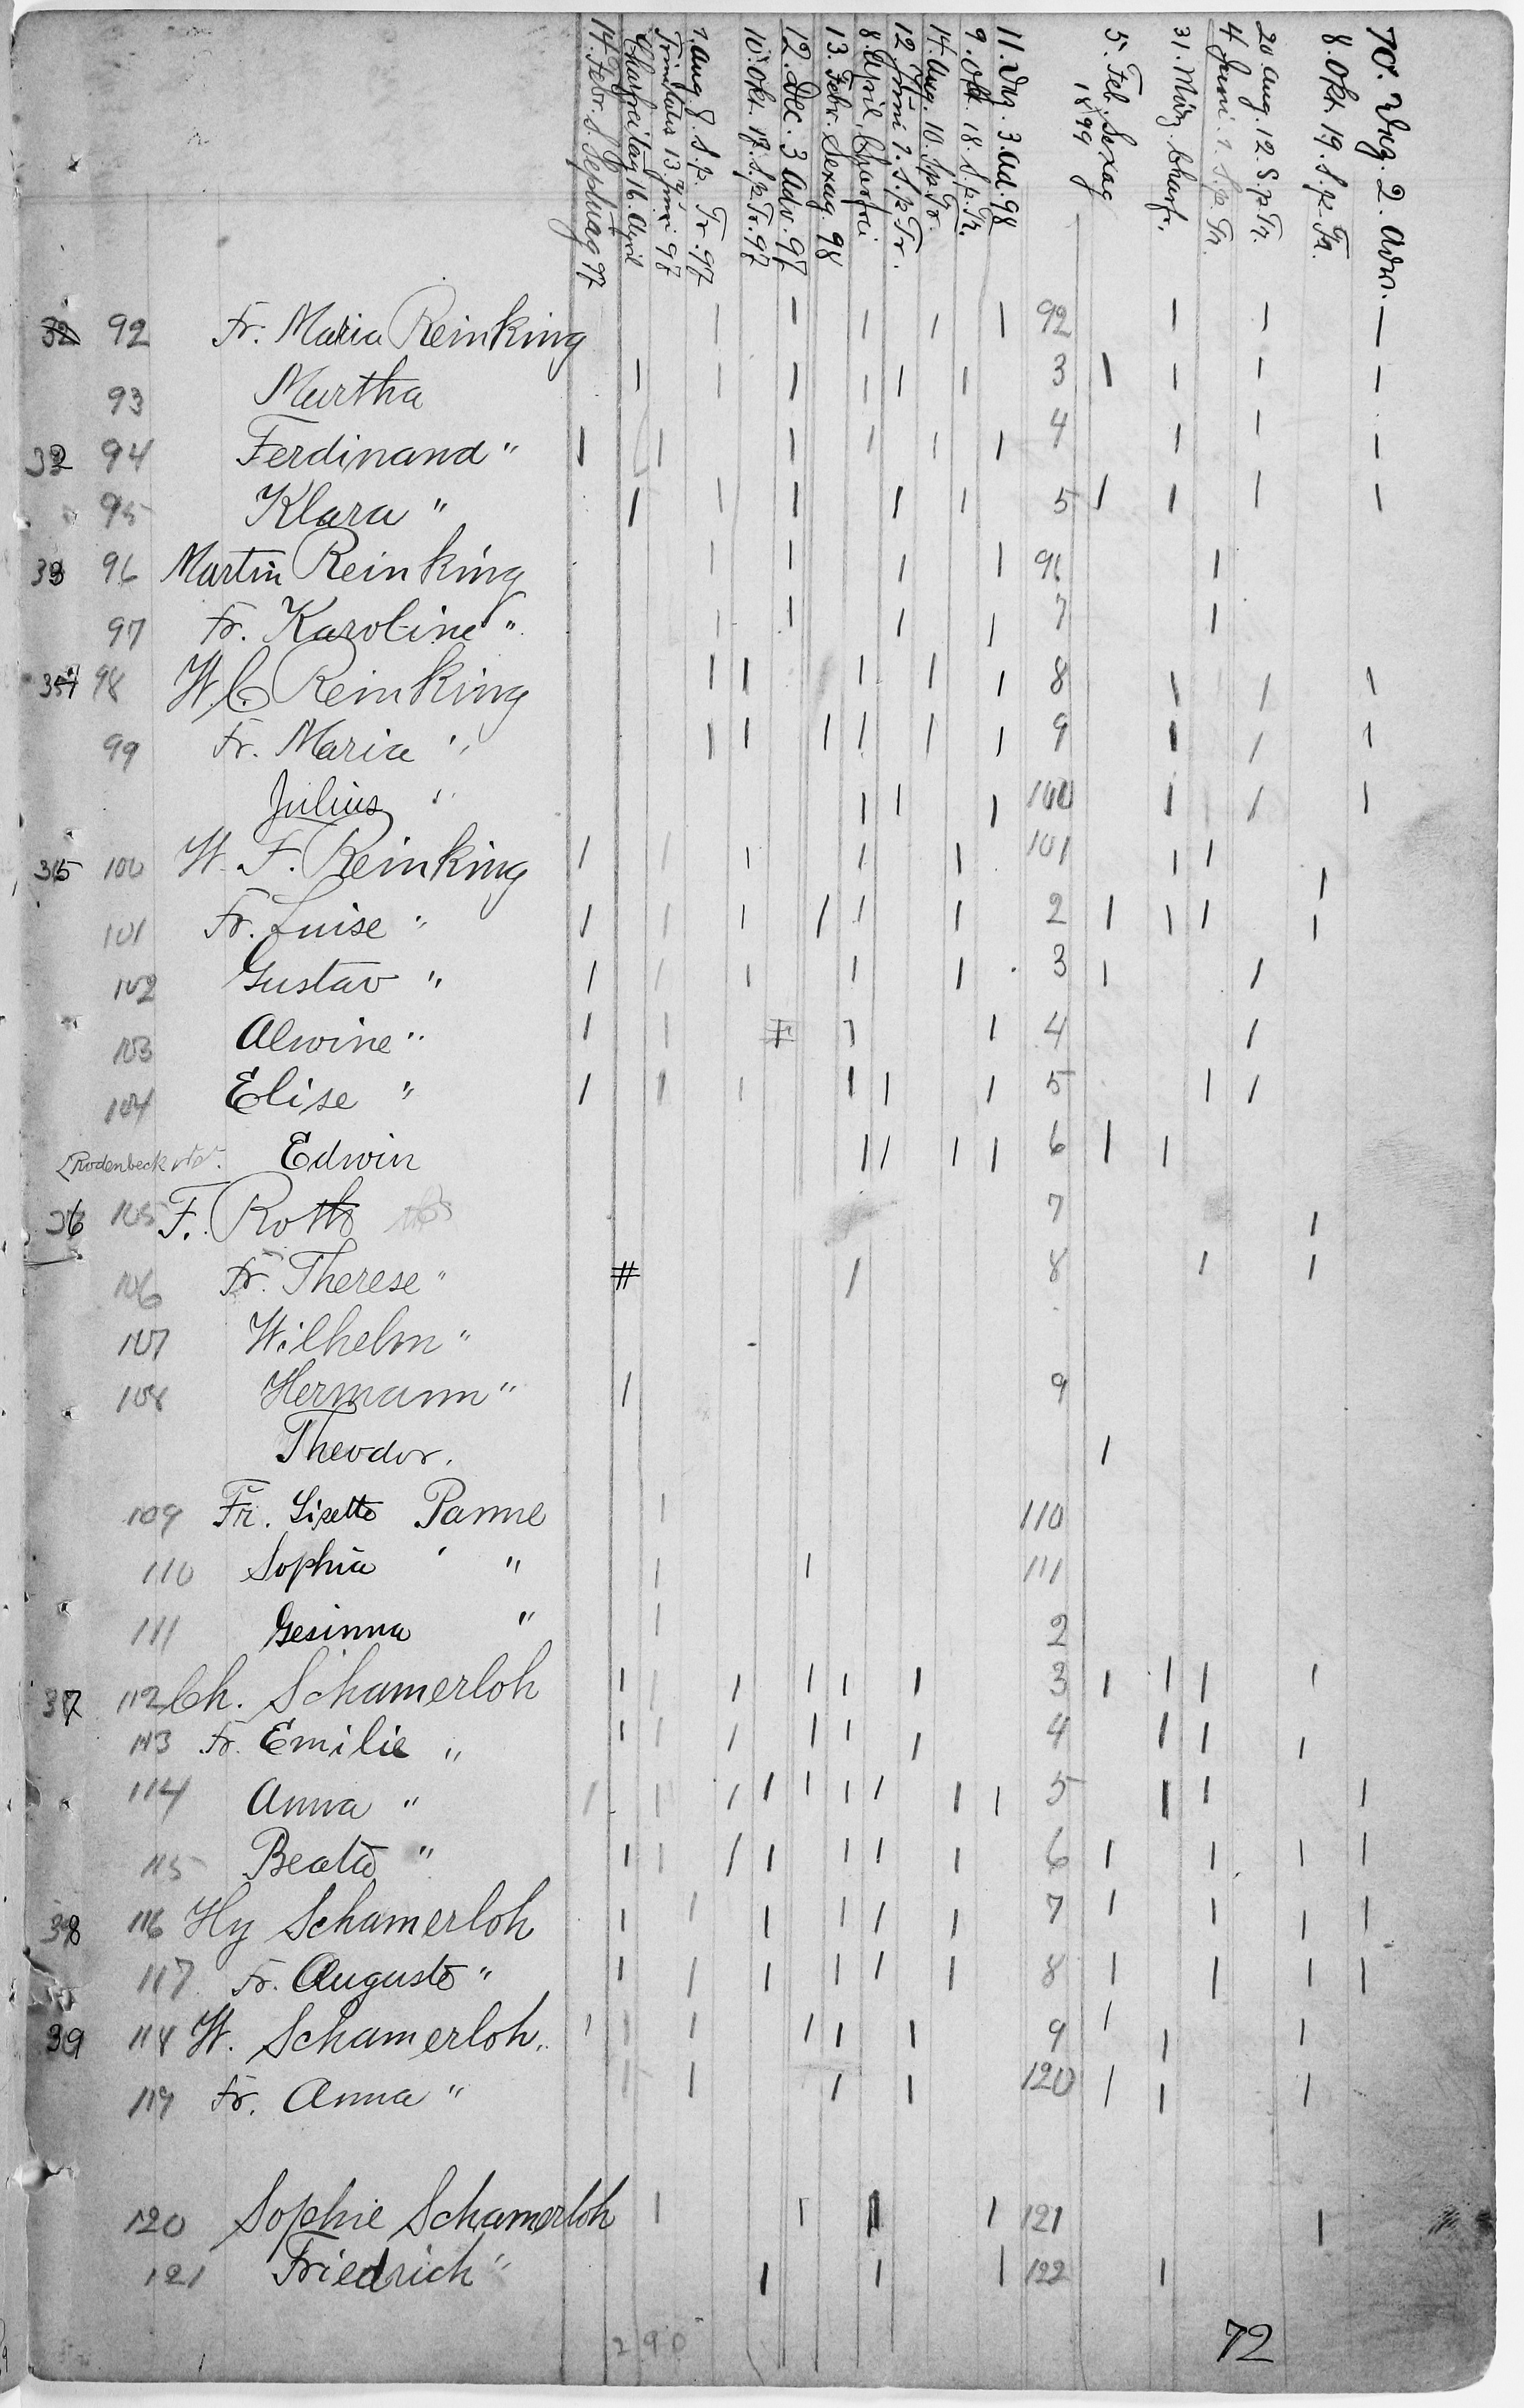 14. Febr. S. Septuag 97
Charfreitag 16. April
Trinitatis 13. Juni 97
1. Aug. 8. S. p. Tr. 97
10. Okt. 17. S. p. Tr. 97
12. Dec. 3 Adv. 97
13. Febr. Sexag. 98
8. April, Charfrei
12 Juni 1. S. p Tr.
14. Aug. 10. S. p. Tr.
9. Okt. 18. S. p. Tr.
11. Dez. 3. Ad. 98
5. Feb. Sexag
1899
31. März Charfr.
4 Juni. 1. S. p. Tr.
20. Aug. 12. S. p. Tr.
8. Okt. 19. S. p. Tr.
10. Dez. 2. Adv.
32 92 Fr. Maria Reinking 92
93 Martha 3
32 94 Ferdinand " 4
95 Klara " 5
33 96 Martin Reinking 96
97 Fr. Karoline " 7
34 98 W. C. Reinking 8
99 Fr. Maria " 9
Julius " 100
35 100 W. F. Reinking 101
101 Fr. Luise " 2
102 Gustav " 3
103 Alwine " 4
104 Elise " 5
Rodenbeck Edwin 6
36 105 F. Roth 7
106 Fr. Therese " # 8
107 Wilhelm "
108 Hermann " 9
Theodor.
109 Fr. Lisette Panne 110
110 Sophia " 111
111 Gesinna " 2
37 112 Ch. Schamerloh 3
113 Fr. Emilie " 4
114 Anna " 5
115 Beata " 6
38 116 Hy Schamerloh 7
117 Fr. Auguste " 8
39 118 W. Schamerloh. 9
119 Fr. Anna " 120
120 Sophie Schamerloh 121
121 Friedrich " 122
290
72